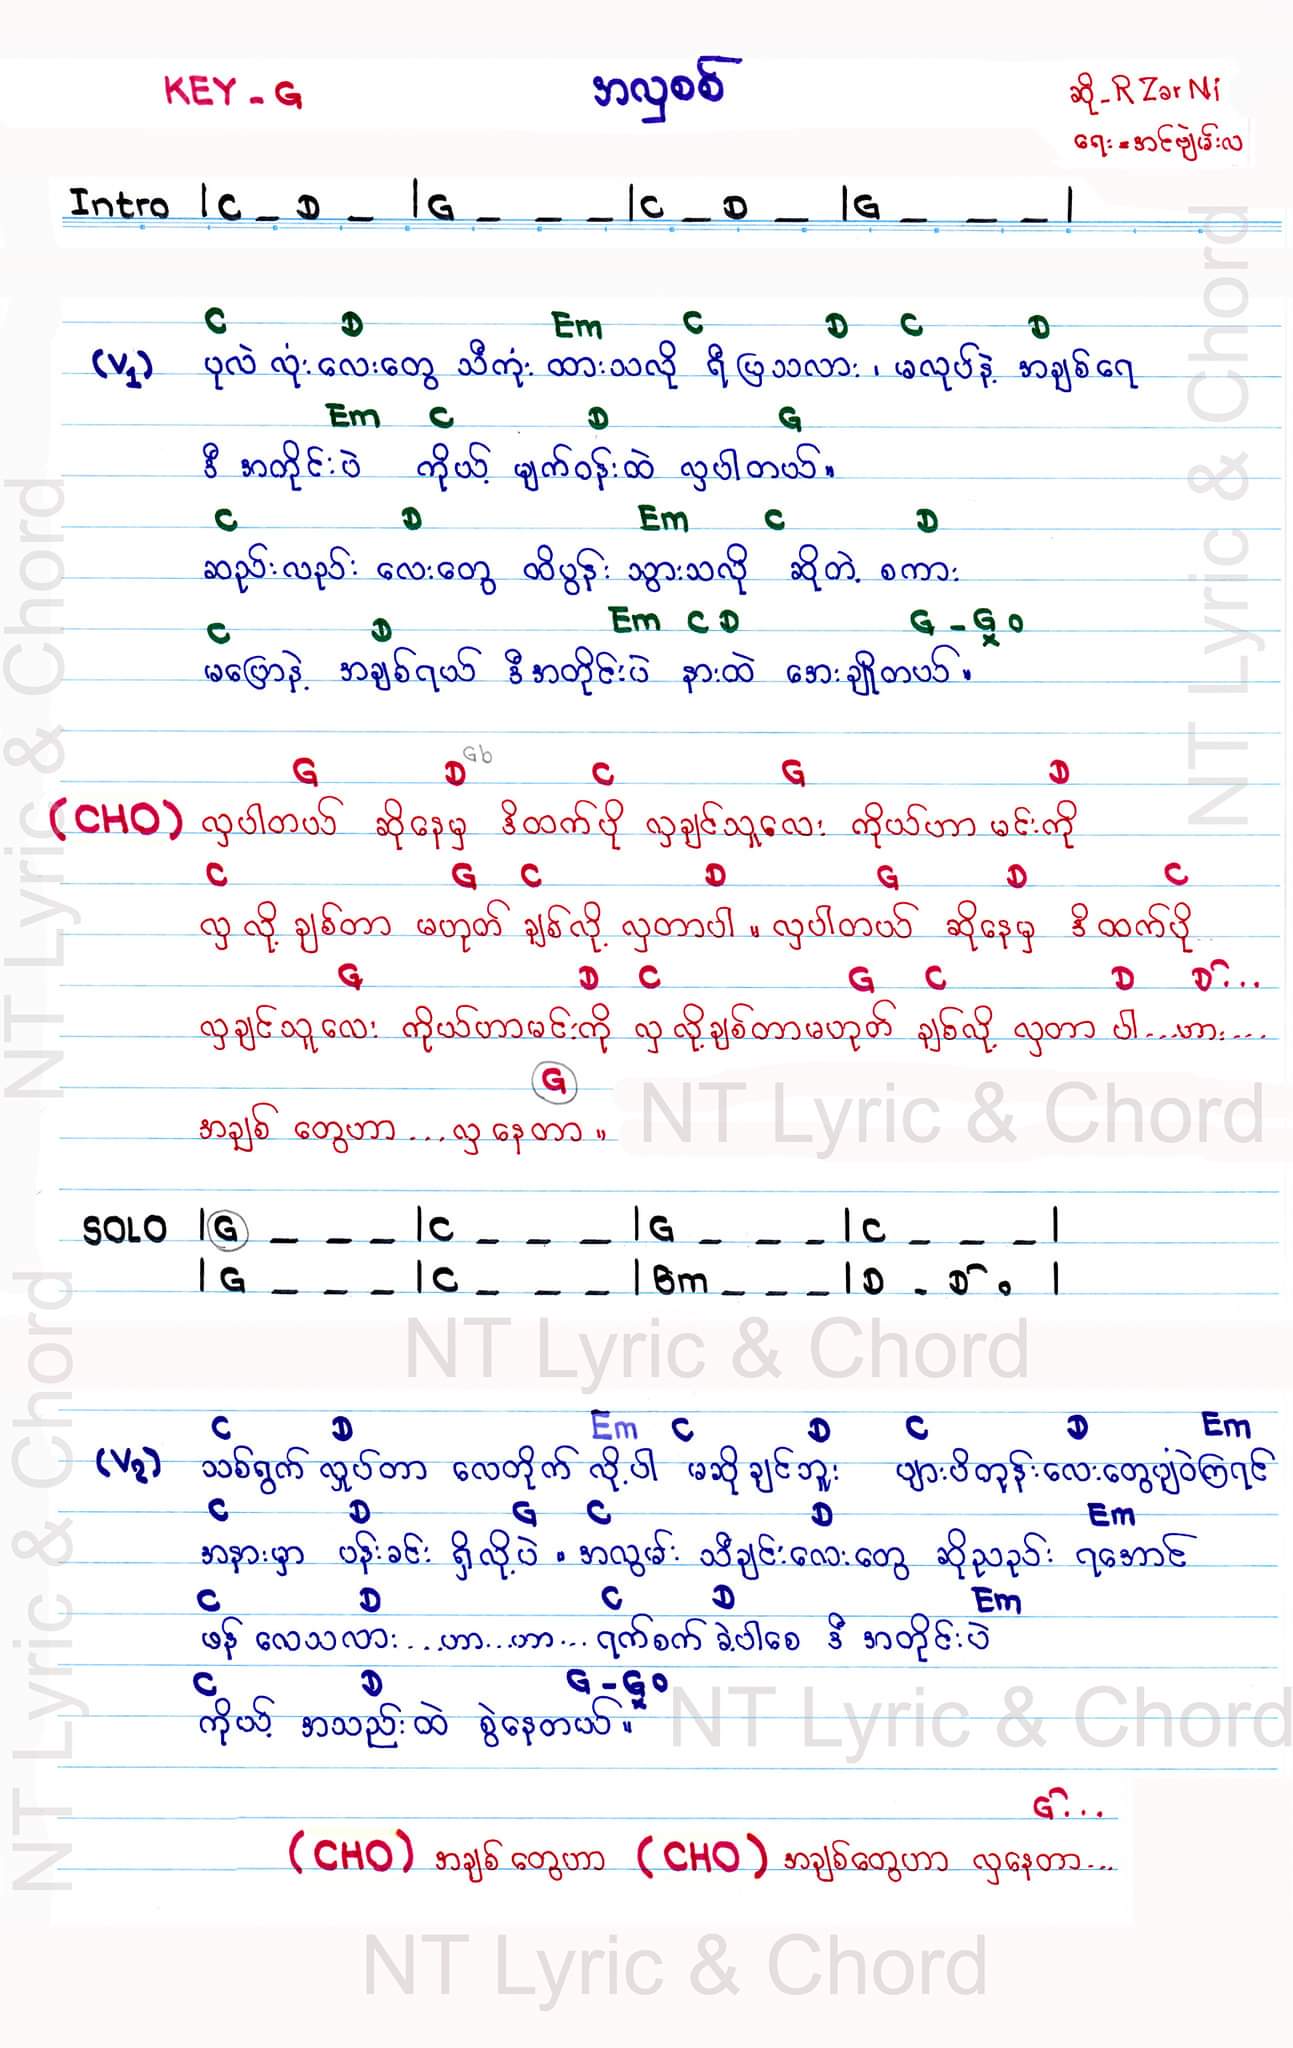 KEY - G
အလှစစ်
ဆို - R Zar Ni
ရေး = အင်ဗျဲမ်းလ
Intro |C _ D _ |G _ _ _ |C _ D _ |G _ _ _ |
C D Em C D C D
(V1) ပုလဲ လုံးလေးတွေ သီကုံး ထားသလို ရီပြသလား ၊ မလုပ်နဲ့ အချစ်ရေ
Em C D G
ဒီ အတိုင်းပဲ ကိုယ့် မျက်ဝန်းထဲ လှပါတယ်။
C D Em C D
ဆည်းလည်း လေးတွေ ထိပွန်း သွားသလို ဆိုတဲ့ စကား
C D Em C D G - G x o
မပြောနဲ့ အချစ်ရယ် ဒီအတိုင်းပဲ နားထဲ အေးချိုတယ်။
G D Gb C G D
(CHO) လှပါတယ် ဆိုနေမှ ဒီထက်ပို လှချင်သူလေး ကိုယ်ဟာ မင်းကို
C G C D G D C
လှ လို့ ချစ်တာ မဟုတ် ချစ်လို့ လှတာပါ ။ လှပါတယ် ဆိုနေမှ ဒီ ထက်ပို
G D C G C D D...
လှချင်သူလေး ကိုယ်ဟာမင်းကို လှ လို့ချစ်တာမဟုတ် ချစ်လို့ လှတာ ပါ ...ဟား....
G
အချစ် တွေဟာ ... လှ နေတာ ။
SOLO |G _ _ _ |C _ _ _ |G _ _ _ |C _ _ _ |
|G _ _ _ |C _ _ _ |Bm _ _ _ |D . D o |
C D Em C D C D Em
(V2) သစ်ရွက် လှုပ်တာ လေတိုက် လို့ပါ မဆိုချင်ဘူး ပျားပိတုန်းလေးတွေပျံဝဲကြရင်
C D G C D Em
အနားမှာ ပန်းခင်း ရှိလို့ပဲ ။ အလွမ်း သီချင်းလေးတွေ ဆိုညည်း ရအောင်
C D C D Em
ဖန် လေသလား ...ဟာ...ဟာ... ရက်စက် ခဲ့ပါစေ ဒီ အတိုင်းပဲ
C D G - G x o
ကိုယ့် အသည်းထဲ စွဲနေတယ်။
G...
(CHO) အချစ်တွေဟာ (CHO) အချစ်တွေဟာ လှနေတာ...
NT Lyric & Chord
NT Lyric & Chord
NT Lyric & Chord
NT Lyric & Chord
NT Lyric & Chord
NT Lyric & Chord
NT Lyric & Chord